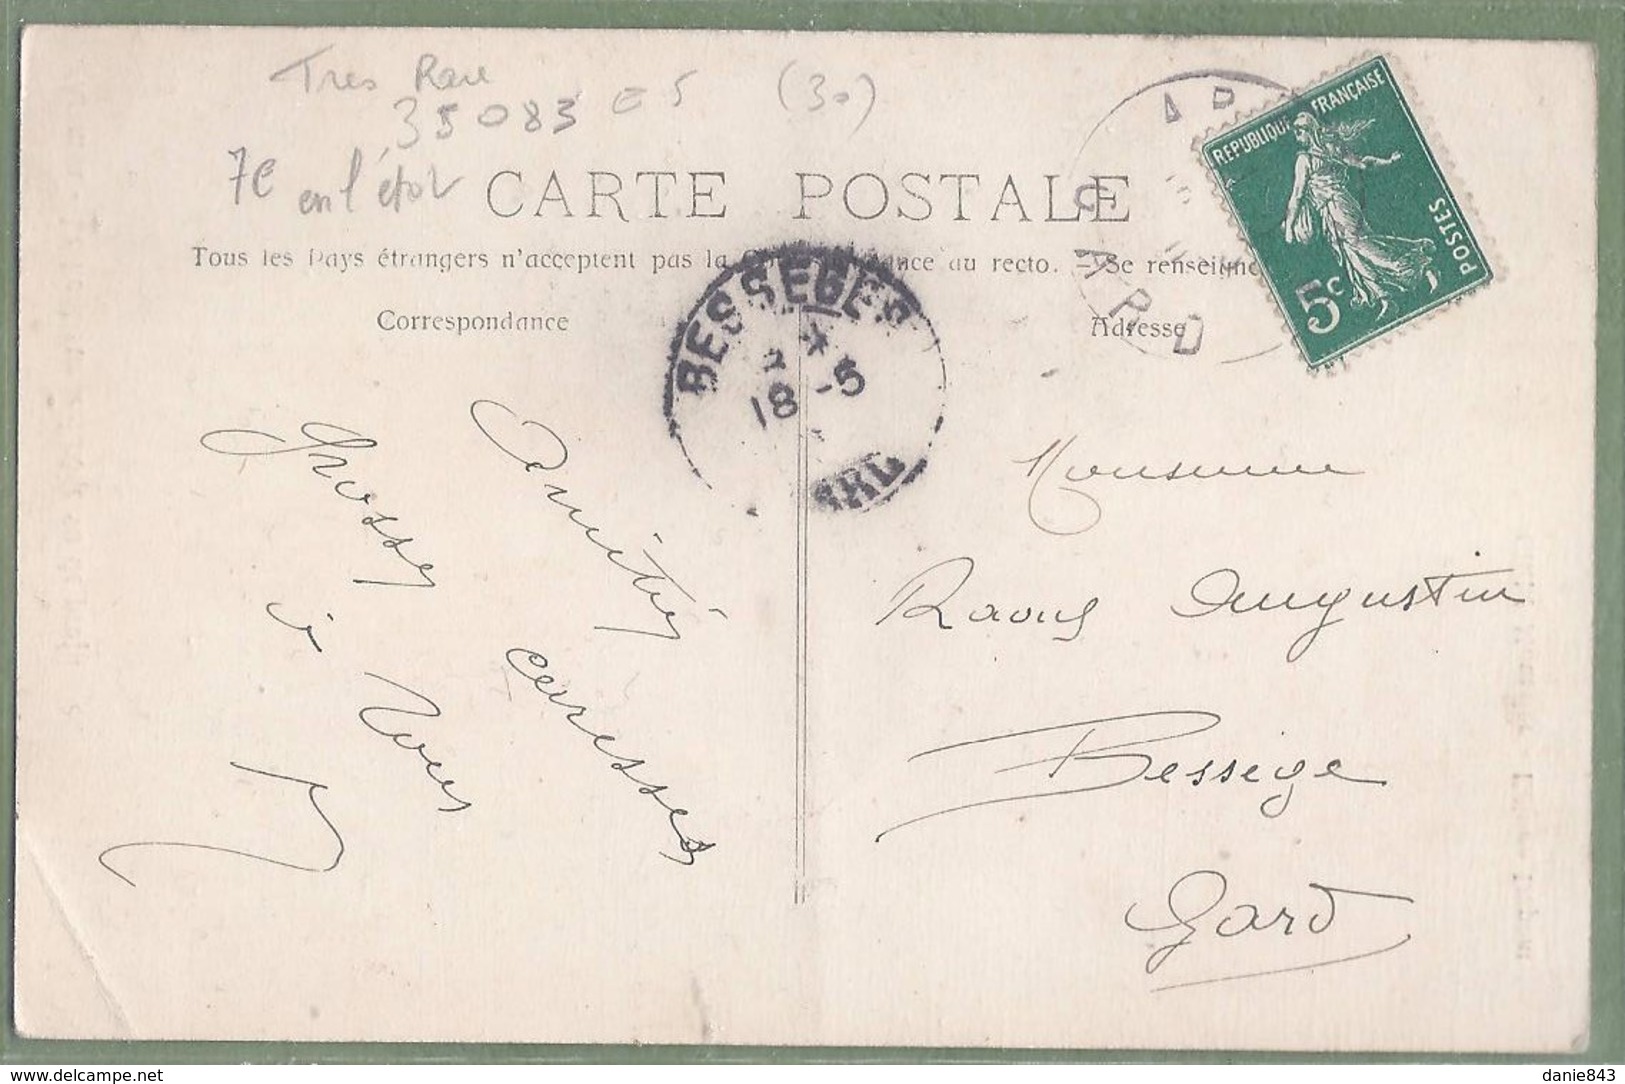 Tres Rare
35083 05 (30)
7€ en l'état
CARTE POSTALE
Tous les Pays étrangers n'acceptent pas la Correspondance au recto. — Se renseigne
Correspondance
Adresse
REPUBLIQUE FRANÇAISE
POSTES
5c
GARD
BESSEGES
18 -5
GARD
Amitiés
caresses
Grosses
à Vous
Monsieur
Raoul Augustin
Bessege
Gard
delcampe.net
danie843